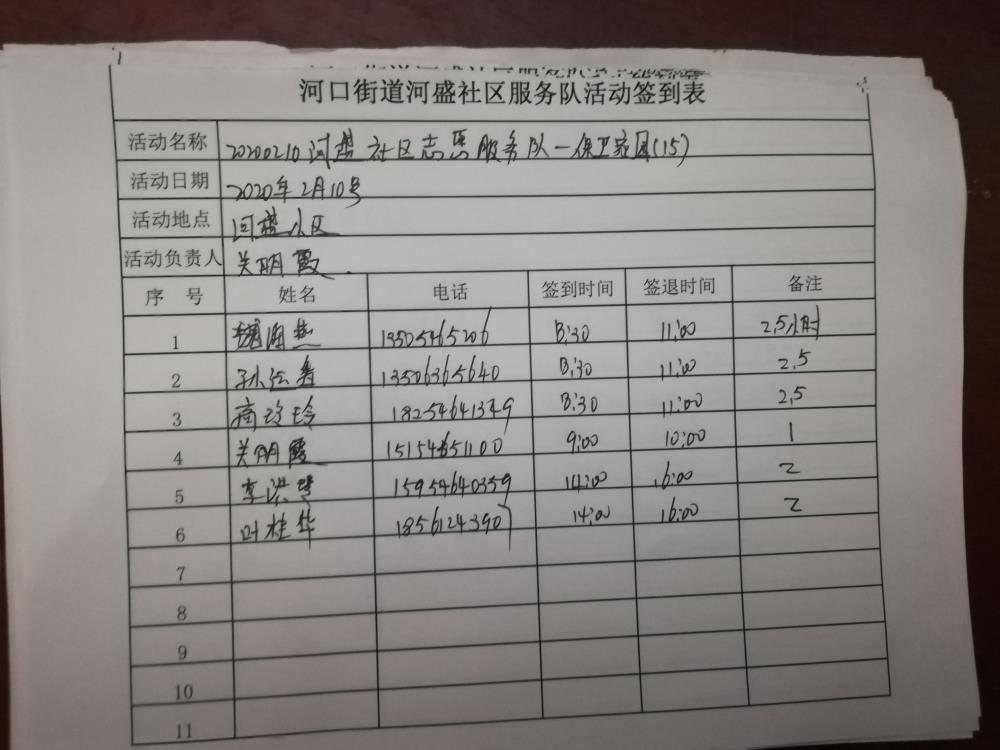 河口街道河盛社区服务队活动签到表
活动名称 20200210河盛社区志愿服务队—保卫家园(15)
活动日期 2020年2月10号
活动地点 河盛小区
活动负责人 关明霞
序号 姓名 电话 签到时间 签退时间 备注
1 13505465206 8:30 11:00 2.5小时
2 13506365640 8:30 11:00 2.5
3 18254641349 8:30 11:00 2.5
4 关明霞 15154651100 9:00 10:00 1
5 15954640359 14:00 16:00 2
6 叶桂华 18561243907 14:00 16:00 2
7
8
9
10
11